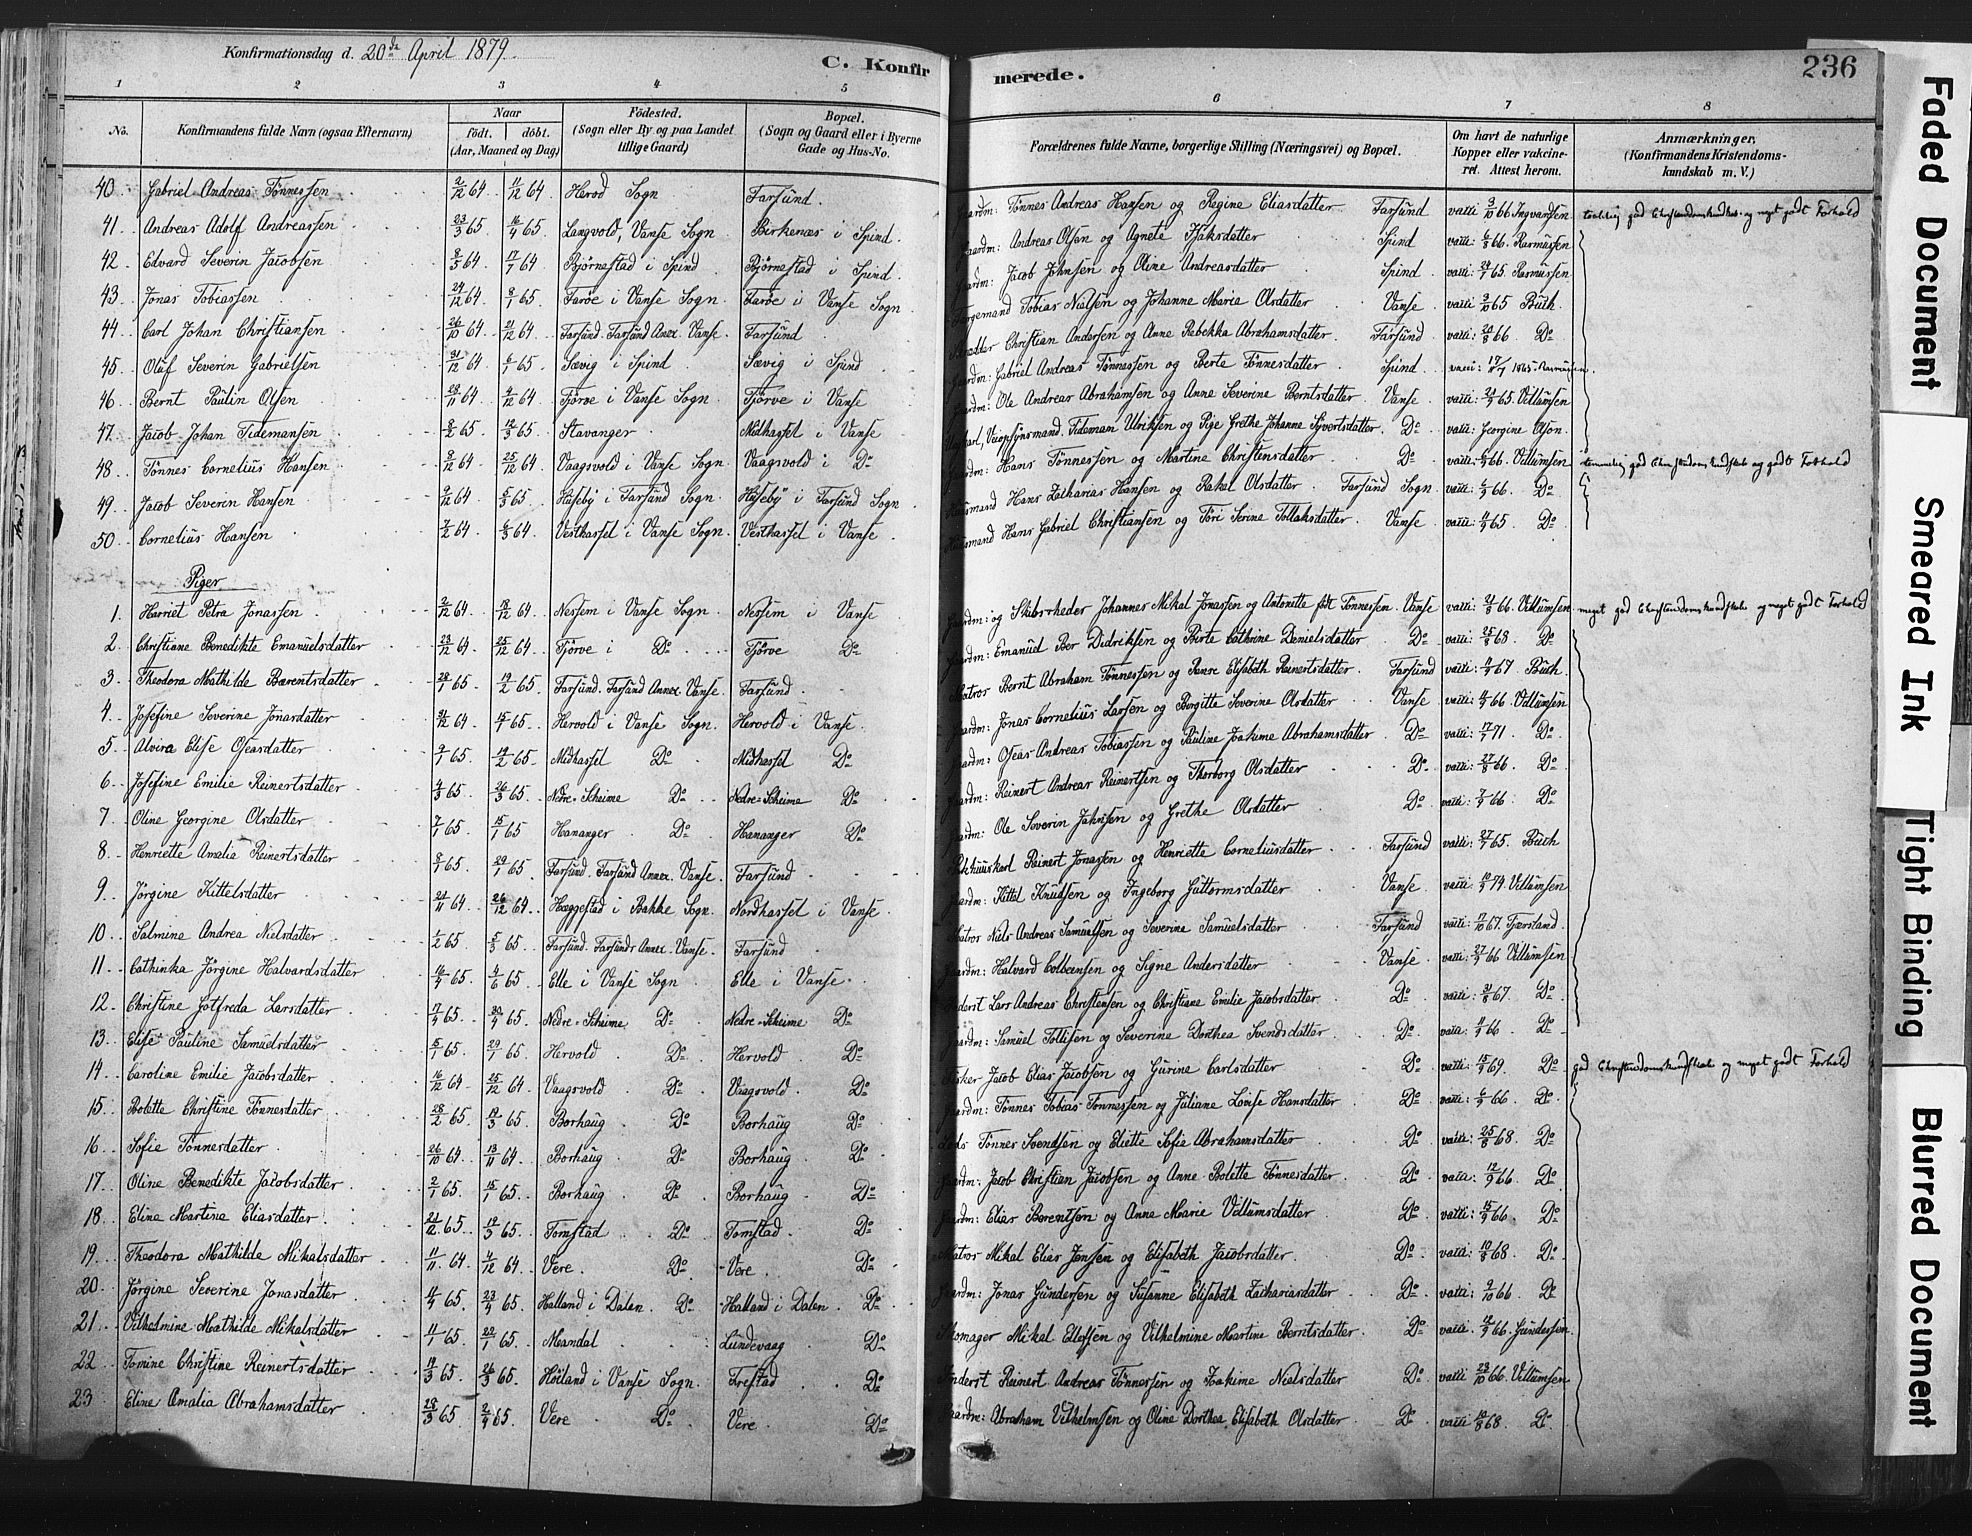 Konfirmationsdag d. 20de April 1879. C. Konfirmerede. 236
1 2 3 4 5 6 7 8
No. Konfirmandens fulde Navn (ogsaa Efternavn) Naar födt. döbt. (Aar, Maaned og Dag) Födested. (Sogn eller By og paa Landet tillige Gaard) Bopæl. (Sogn og Gaard eller i Byerne Gade og Hus-No. Forældrenes fulde Navne, borgerlige Stilling (Næringsvei) og Bopæl. Om havt de naturlige Kopper eller vakcineret. Attest herom. Anmærkninger. (Konfirmandens Kristendomskundskab m. V.)
40. Gabriel Andreas Tönnessen 2/12 64 11/12 64 Herod Sogn Farsund. Gaardm: Tönnes Andreas Hansen og Regine Eliasdatter Farsund vacci 3/10 66 Ingvarsen god Christendomskundskab og meget godt Forhold
41. Andreas Adolf Andreassen 23/3 65 16/4 65 Langvold, Vanse Sogn Birkenæs i Spind. Gaardm: Andreas Olsen og Agnete Isaksdatter Spind vacci: 6/8 66. Rasmussen
42. Edvard Severin Jacobsen 8/3 64 17/7 64 Björnestad i Spind Björnestad i Spind. Gaardm: Jacob Johnsen og Oline Andreasdatter Spind vacci: 24/7 65. Rasmussen
43. Jonas Tobiassen 29/12 64 8/1 65. Faröe i Vanse Sogn. Faröe i Vanse Sogn Færgemand Tobias Nielsen og Johanne Maria Olsdatter Vanse vacci 3/10 65 Buch.
44. Carl Johan Christiansen 26/10 64. 21/12 64 Farsund. Farsund Anex. Vanse. Farsund Christian Andersen og Anne Rebekka Abrahamsdatter. Farsund vacci: 20/8 66. Do
45. Oluf Severin Gabrielsen 31/12 64 6/1 65. Sævig i Spind Sævig i Spind Gaardm: Gabriel Andreas Tönnessen og Berte Tönnesdatter Spind vacci: 17/7 1865
46. Bernt Paulin Olsen 28/11 64. 4/12 64 Tjörve i Vanse Sogn. Tjörve i Vanse Gaardm: Ole Andreas Abrahamsen og Anne Severine Berntsdatter Vanse. vacci: 21/9 65. Villumsen
47. Jacob Johan Tidemansen 8/2 65. 12/3 65. Stavanger Midhassel i Vanse Tideman Ulriksen og Pige Grethe Johanne Sivertsdatter. Do vacci: Georgine Olson.
48. Tönnes Cornelius Hansen 8/12 64 25/12 64 Vaagsvold i Vanse Sogn. Vaagsvold i Do Gaardm: Hans Tönnessen og Martine Christensdatter Do vacci: 6/9 66. Villumsen temmelig god Christendomskundskab og godt Forhold
49. Jacob Severin Hansen 9/12 64 5/3 65. Huseby i Farsund Sogn. Huseby i Farsund Sogn Huusmand Hans Zacharias Hansen og Rakel Olsdatter. Farsund Sogn. vacci: 6/9 66. Do
50. Cornelius Hansen 7/2 64 6/3 64 Vesthassel i Vanse Sogn. Vesthassel i Vanse Huusmand Hans Gabriel Christiansen og Töri Serine Tollaksdatter Vanse. vacci: 11/9 65. Do
Piger
1. Harriet Petra Jonassen 2/12 64 18/12 64 Nesheim i Vanse Sogn Nesheim i Vanse Gaardm: og Skibsrheder Johannes Mikal Jonassen og Antonette födt Tönnessen. Vanse vacci: 21/8 66. Villumsen meget god Christendomskundskab og meget godt Forhold
2. Christiane Benedikte Emanuelsdatter 23/12 64 25/12 64 Tjörve i Do Tjörve Do Gaardm: Emanuel Ber Didriksen og Birte Cathrine Danielsdatter Do vacci: 25/8 68. Do
3. Theodora Mathilde Bærentsdatter 28/1 65. 19/2 65. Farsund. Farsund Annex. Vanse. Farsund. Matros Bernt Abraham Tönnessen og Elisabeth Reinertsdatter. Farsund vacci: 67. Buch.
4. Josefine Severine Jonasdatter 31/12 64. 15/1 65. Hervold i Vanse Sogn. Hervold i Vanse. Gaardm: Jonas Cornelius Larsen og Bergitte Severine Olsdatter Vanse vacci: 66. Villumsen
5. Alvira Elise Oseasdatter 9/1 65. 12/2 65. Midhassel Do Midhassel Do Gaardm: Oseas Andreas Tobiassen og Pauline Joakime Abrahamsdatter. Do vacci: 17/7 71. Do
6. Josefine Emilie Reinertsdatter 4/3 65. 26/3 65. Nedre-Skeime Do Nedre-Skeime Do Gaardm: Reinert Andreas Reinertsen og Thorborg Olsdatter Do vacci: 27/8 66. Do
7. Oline Georgine Olsdatter 7/1 65. 15/1 65 Hananger Do Hananger Do Gaardm: Ole Severin Jahnsen og Grethe Olsdatter Do vacci: 7/9 66. Do
8. Henriette Amalia Reinertsdatter 8/1 65. 29/1 65. Farsund. Farsund Annex. Vanse. Farsund Pakhuuskarl Reinert Jonassen og Henriette Corneliusdatter Farsund vacci: 27/7 65. Buch
9. Jörgine Kittelsdatter 24/11 64. 26/12 64. Hæggestad i Bakke Sogn. Nordhassel i Vanse. Gaardm: Kittel Knudsen og Ingeborg Guttormsdatter Vanse. vacci: 10/9 74. Villumsen
10. Salmine Andrea Nielsdatter 1/2 65. 5/3 65. Farsund. Farsunds Annex. Vanse. Farsund Matros Niels Andreas Samuelsen og Severine Samuelsdatter Farsund vacci: 17/10 67.
11. Cathinka Jörgine Halvardsdatter 16/4 65. 4/6 65. Elle i Vanse Sogn Elle i Vanse. Gaardm: Halvard Colbeensen og Signe Andersdatter Vanse. vacci: 27/9 66 Villumsen
12. Christine Gotfreda Larsdatter 17/4 65. 30/4 65. Nedre-Skeime Do Nedre-Skeime Do Inderst Lars Andreas Christensen og Christiane Emilie Jacobsdatter Do vacci: 31/8 67. Do
13. Elise Pauline Samuelsdatter 5/1 65. 29/1 65. Hervold Do Hervold Do Gaardm: Samuel Tollisen og Severine Dorthea Svendsdatter Do vacci: 66. Do
14. Caroline Emilie Jacobsdatter 16/12 64. 25/12 64. Vaagsvold Do Vaagsvold Do Fisker Jacob Elias Jacobsen og Gurine Carlsdatter Do vacci: 15/9 69. Do god Christendomskundskab og meget godt Forhold
15. Bolette Christine Tönnesdatter 28/2 65. 19/3 65. Borhaug Do Borhaug Do Gaardm: Tönnes Tobias Tönnessen og Juliane Lovise Hansdatter Do vacci: 6/9 66. Do
16. Sofie Tönnesdatter 26/10 64. 13/11 64. Borhaug Do Borhaug Do Lods Tönnes Svendsen og Eliette Sofie Abrahamsdatter Do vacci: 25/8 68. Do
17. Oline Benedikte Jacobsdatter 2/1 65. 15/1 65. Borhaug Do Borhaug Do Gaardm: Jacob Christian Jacobsen og Anne Bolette Tönnesdatter Do vacci: 12/9 66. Do
18. Eline Martine Eliasdatter 21/12 65. 12/3 65. Tomstad Do Tomstad. Do Gaardm: Elias Berentsen og Anne Marie Villumsdatter Do vacci: 15/9 66. Do
19. Theodora Mathilde Mikalsdatter 11/11 64. 4/12 64. Vere. Do Vere. Do Matros Mikal Elias Jensen og Elisabeth Jacobsdatter Do vacci: 10/8 68. Do
20. Jörgine Severine Jonasdatter 11/4 65. 23/4 65. Halland i Dalen. Do Halland i Dalen. Do Gaardm: Jonas Gundersen og Susanne Elisabeth Zachariasdatter Do vacci: 9/10 66. Do
21. Vilhelmine Mathilde Mikalsdatter 11/1 65. 22/1 65. Mandal Lundevaag Do Skomager Mikal Ellefsen og Vilhelmine Martine Berntsdatter. Do vacci: 12/9 66. Gundersen.
22. Tomine Christine Reinertsdatter 14/3 65. 26/3 65. Höiland i Vanse Sogn. Frestad Do Inderst Reinert Andreas Tönnessen og Joakime Nielsdatter Do vacci: 23/10 66. Villumsen
23. Eline Amalia Abrahamsdatter 25/3 65. 2/4 65. Vere Do Vere. Do Gaardm: Abraham Vilhelmsen og Oline Dorthea Elisabeth Olsdatter Do vacci: 10/8 68. Do
Faded Document
Smeared Ink
Tight Binding
Blurred Document